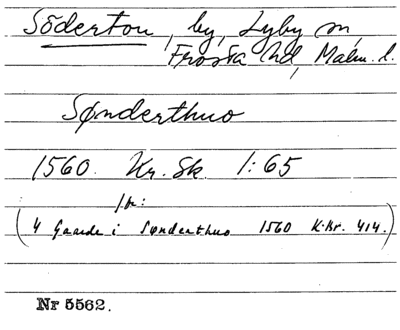 Södertou, by, Lyby sn,
Frosta hd, Malm. l.
Sønderthuo
1560. Kr. Sk. 1:65
fr:
(4 Gaarde i Sønderthuo 1560 K.Br. 414.)
Nr 5562.